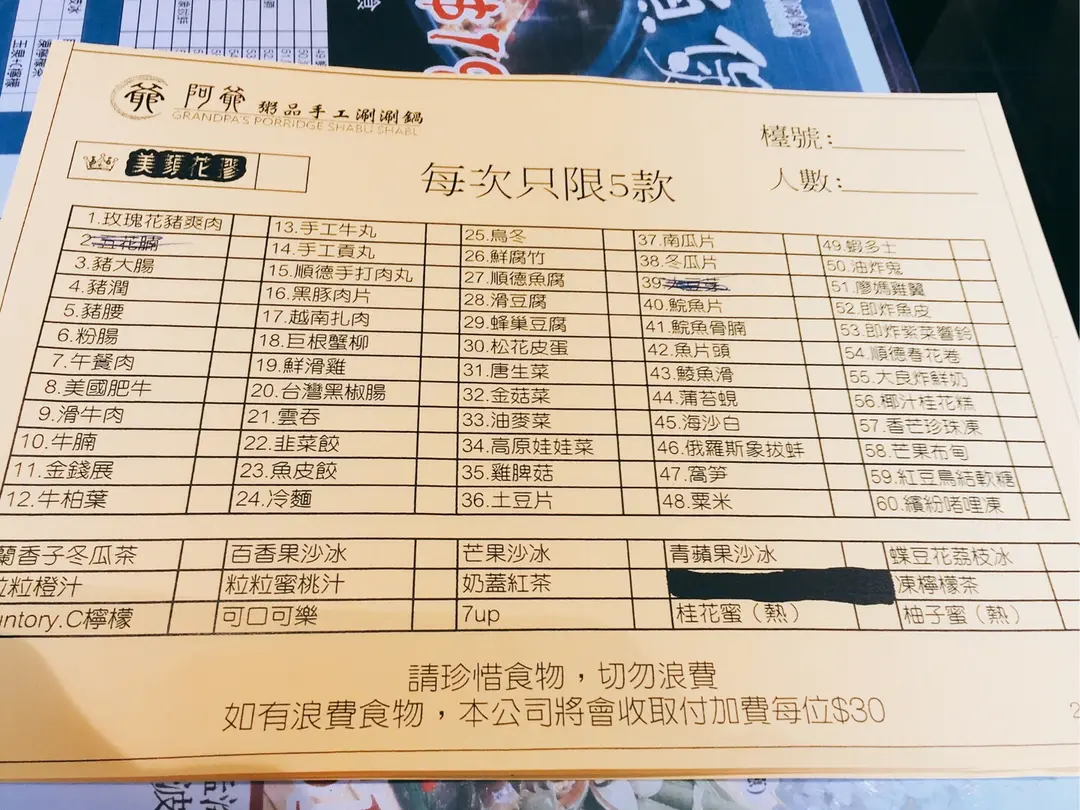 爺 阿爺 粥品手工涮涮鍋
GRANDPA'S PORRIDGE SHABU SHABU
檯號:
美 花膠
每次只限5款
人數:
1.玫瑰花豬爽肉 13.手工牛丸 25.烏冬 37.南瓜片 49.蝦多士
2.五花腩 14.手工貢丸 26.鮮腐竹 38.冬瓜片 50.油炸鬼
3.豬大腸 15.順德手打肉丸 27.順德魚腐 39. 51.廖媽雞翼
4.豬潤 16.黑豚肉片 28.滑豆腐 40.鯇魚片 52.即炸魚皮
5.豬腰 17.越南扎肉 29.蜂巢豆腐 41.鯇魚骨腩 53.即炸紫菜響鈴
6.粉腸 18.巨根蟹柳 30.松花皮蛋 42.魚片頭 54.順德春花卷
7.午餐肉 19.鮮滑雞 31.唐生菜 43.鯪魚滑 55.大良炸鮮奶
8.美國肥牛 20.台灣黑椒腸 32.金菇菜 44.蒲苔蜆 56.椰汁桂花糕
9.滑牛肉 21.雲吞 33.油麥菜 45.海沙白 57.香芒珍珠凍
10.牛腩 22.韭菜餃 34.高原娃娃菜 46.俄羅斯象拔蚌 58.芒果布甸
11.金錢展 23.魚皮餃 35.雞脾菇 47.窩笋 59.紅豆鳥結軟糖
12.牛柏葉 24.冷麵 36.土豆片 48.粟米 60.繽紛啫哩凍
蘭香子冬瓜茶 百香果沙冰 芒果沙冰 青蘋果沙冰 蝶豆花荔枝冰
粒橙汁 粒粒蜜桃汁 奶蓋紅茶 凍檸檬茶
ntory.C檸檬 可口可樂 7up 桂花蜜（熱） 柚子蜜（熱）
請珍惜食物，切勿浪費
如有浪費食物，本公司將會收取付加費每位$30